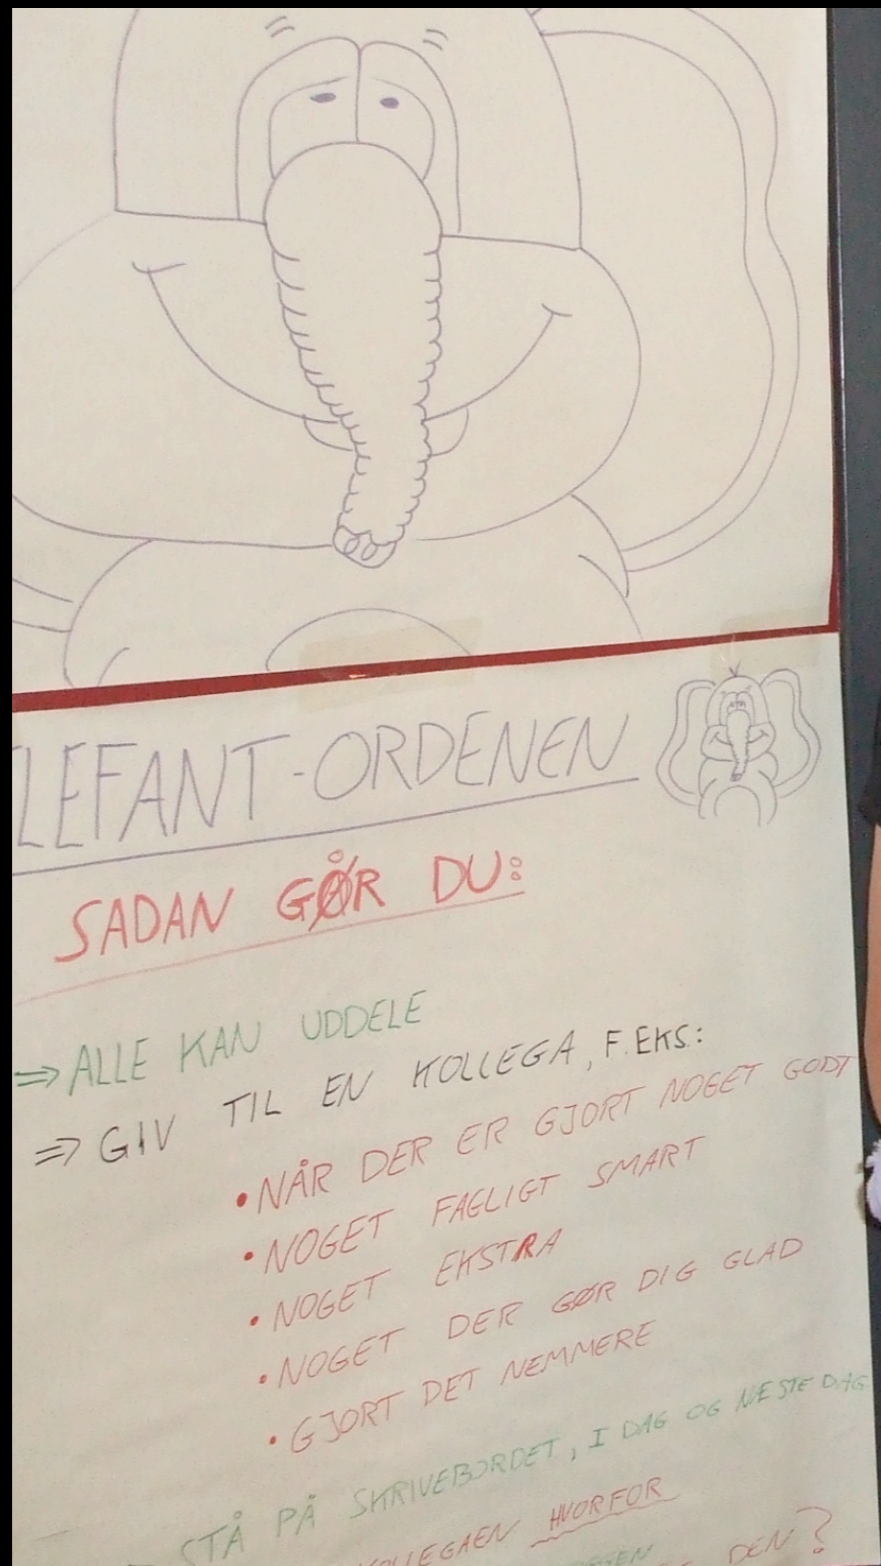 LEFANT-ORDENEN
SADAN GØR DU:
⇒ ALLE KAN UDDELE
⇒ GIV TIL EN KOLLEGA, F.EKS:
• NÅR DER ER GJORT NOGET GODT
• NOGET FAGLIGT SMART
• NOGET EKSTRA
• NOGET DER GØR DIG GLAD
• GJORT DET NEMMERE
STÅ PÅ SKRIVEBORDET, I DAG OG NESTE DAG
KOLLEGAEN HVORFOR
DEN?